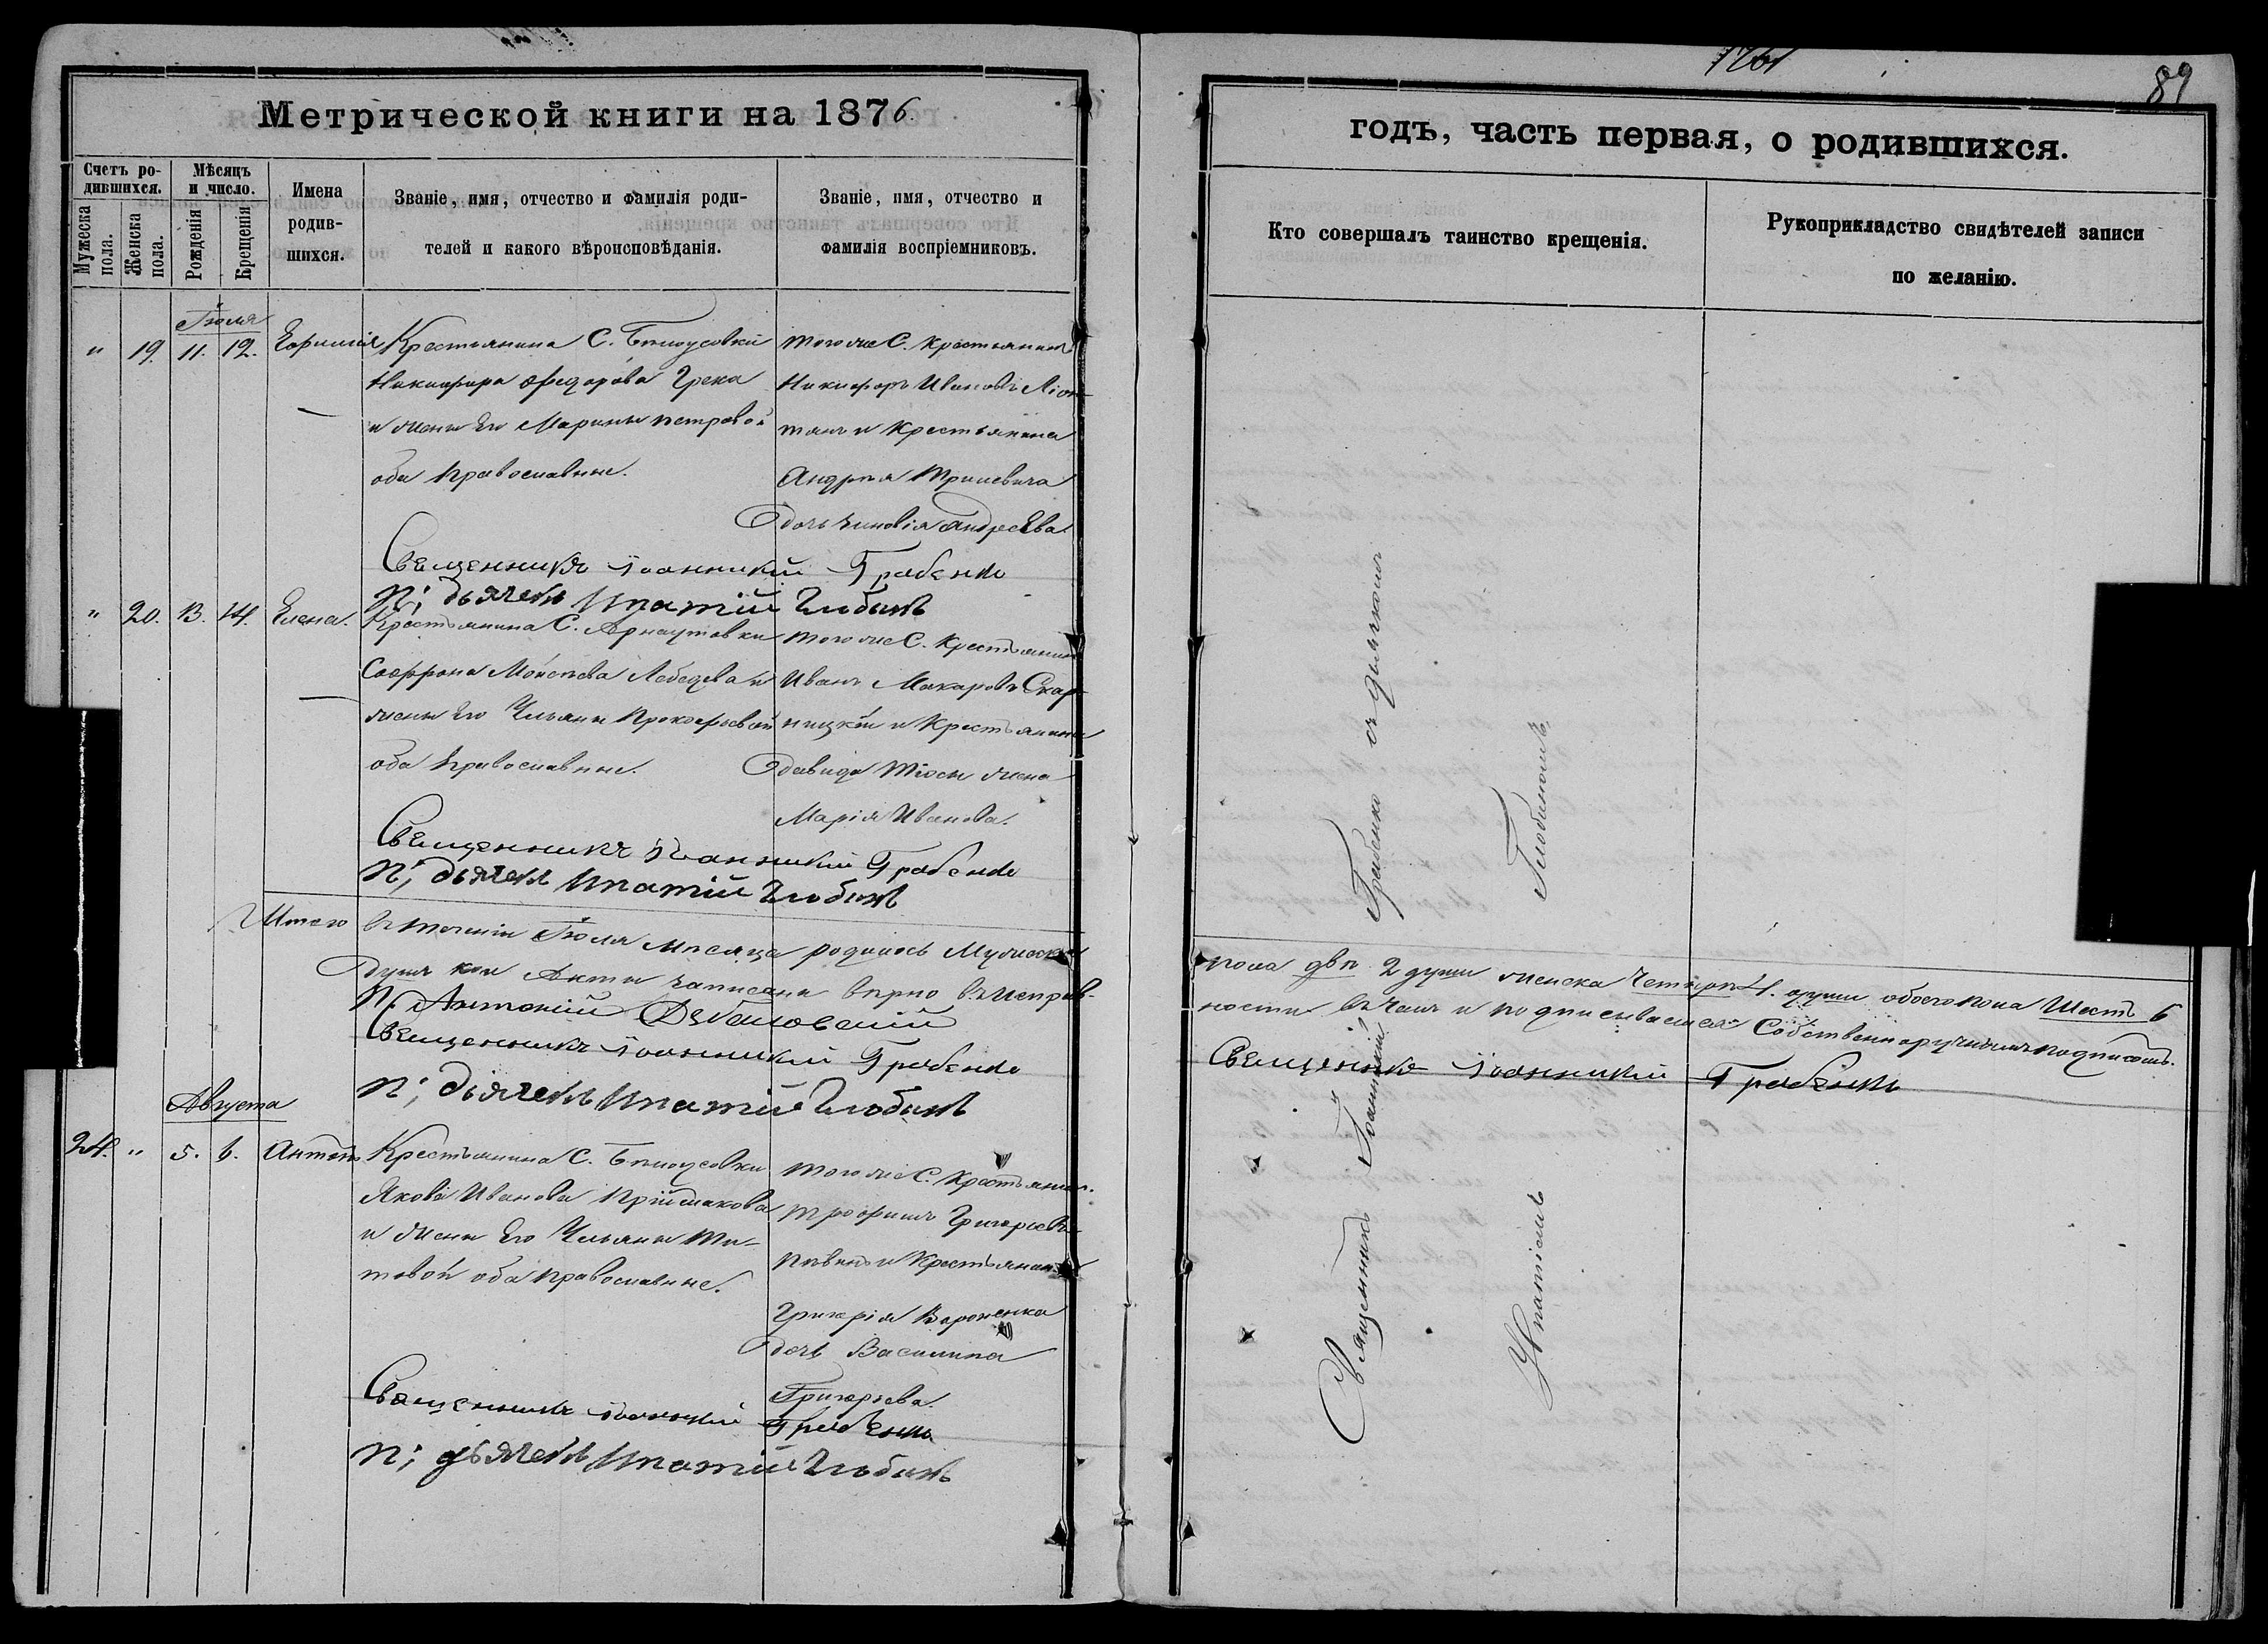 89
Метрической книги на 1876.
годъ, часть первая, о родившихся.
Счетъ ро-
дившихся.
Мужеска
пола.
Женска
пола.
Мѣсяцъ
и число.
Рожденія
Крещенія
Имена
родив-
шихся.
Званіе, имя, отчество и фамилія роди-
телей и какого вѣроисповѣданія.
Званіе, имя, отчество и
фамилія воспріемниковъ.
Кто совершалъ таинство крещенія.
Рукоприкладство свидѣтелей записи
по желанію.
Іюля
" 19. 11. 12.
Крестьянина С. Бѣлоусовки
Никифора Федорова Грека
и жены Его Марины Петровой
оба православные.
того же С. Крестьянинъ
Никифоръ Ивановъ Ліон-
тянъ и Крестьянина
Андрея
дочь Зиновія Андреева
Священникъ Іоанникій Грабенко
п; дьячекъ Ипатій Глобинъ
" 20. 13. 14. Елена.
Крестьянина С. Арнаутовки
Софрона Моисѣева Лебедева и
жены Его Ульяны Прокофьевой
оба православные.
того же С. Крестьянинъ
Иванъ Макаровъ Скар-
ницкій и Крестьянина
Давида жена
Марія Иванова.
Священникъ Іоанникій Грабенко
п; дьячекъ Ипатій Глобинъ
Итого въ теченіи Іюля мѣсяца родилось Мужеска
пола двѣ 2 души женска четыре 4. души обоего пола Шесть 6
душъ кои Акты записаны вѣрно въ исправ-
ности въ чемъ и подписываемся Собственноручнымъ подписомъ.
Священникъ Іоанникій Грабенко
п; дьячекъ Ипатій Глобинъ
Священникъ Іоанникій Грабенко
Августа
24. " 5. 6. Антонъ
Крестьянина С. Бѣлоусовки
Якова Иванова Пріймакова
и жены Его Ульяны Ти-
товой оба православные.
того же С. Крестьянинъ
Трофимъ Григорьевъ
и Крестьянина
Григорія Вороненка
дочь Василина
Григорьева.
Священникъ Іоанникій Грабенко
п; дьячекъ Ипатій Глобинъ
Священникъ Іоанникій Грабенко съ дьячкомъ
Ипатіемъ Глобинымъ